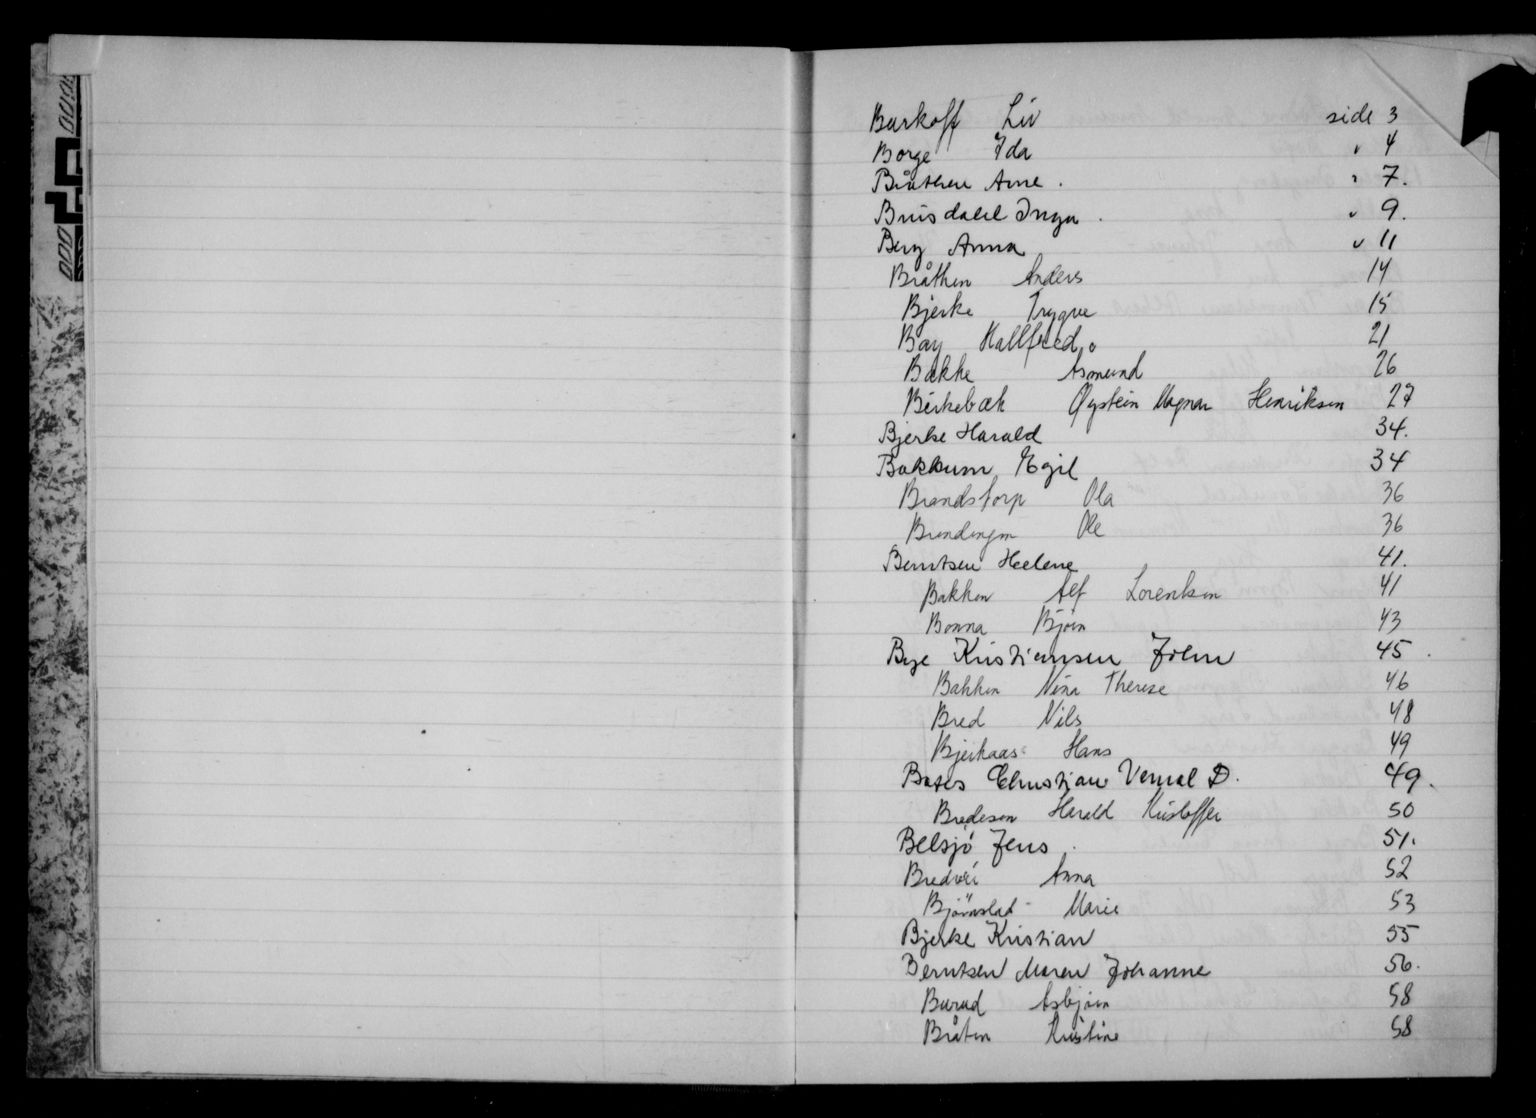 Barkoff Liv side 3
Borge Ida " 4
Bråthen Arne . " 7.
Brusdahl Inga . " 9.
Berg Anna " 11
Bråthen Anders 14
Bjerke Trygve 15
Bay Hallfred 21
Bakke Asmund 26
Birkebæk Øystein Magnar Henriksen 27
Bjerke Harald 34.
Bakkum Egil 34
Brandstorp Ola 36
Ole 36
Berntsen Helene 41.
Bakken Alf Lorentsen 41
Bonna Bjørn 43
Bye Kristiansen John 45 .
Bakken Nina Therese 46
Bred Nils 48
Bjerkaas Hans 49
Bates Christian Vernal D. 49.
Bredesen Harald Kristoffer 50
Belsjø Jens . 51.
Bredveí Anna 52
Bjørnstad - Marie 53
Bjerke Kristian 55
Berntsen Maren Johanne 56.
Burud Asbjørn 58
Bråten Kristine 58